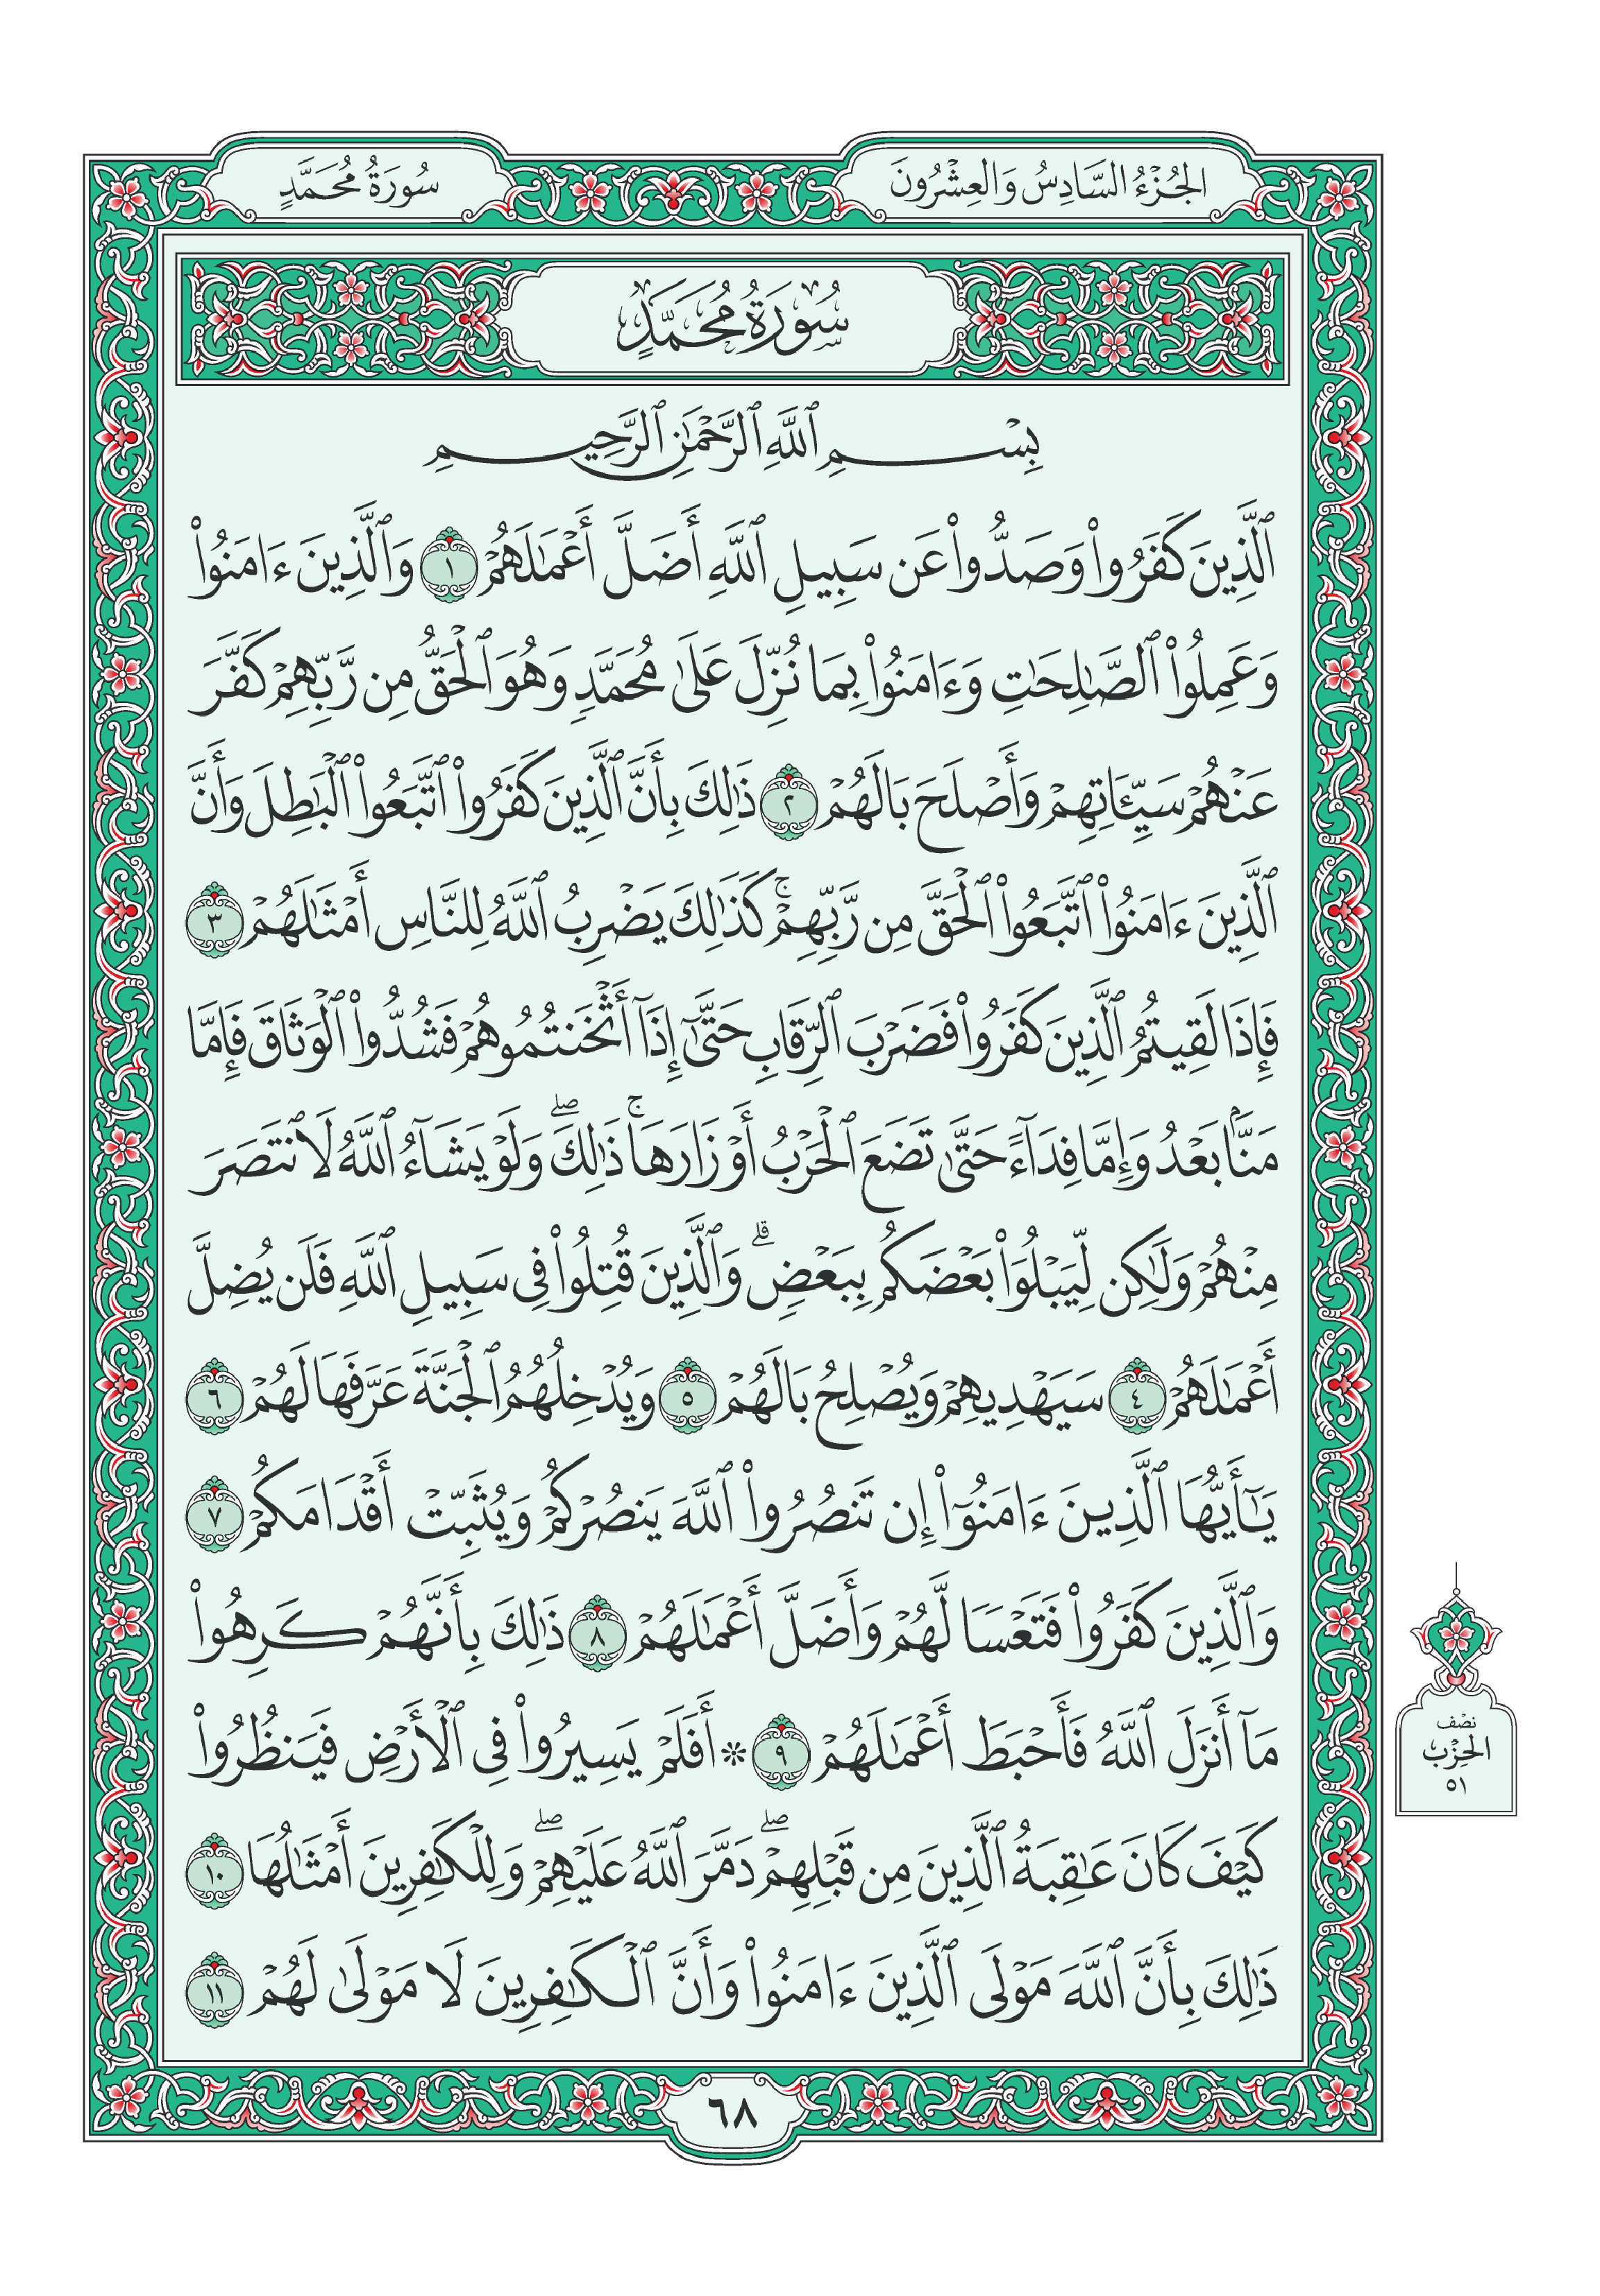 الجُزْءُ السَّادِسُ وَالعِشْرُونَ
سُورَةُ مُحَمَّدٍ
سُورَةُ مُحَمَّدٍ
بِسْمِ ٱللَّهِ ٱلرَّحْمَٰنِ ٱلرَّحِيمِ
ٱلَّذِينَ كَفَرُواْ وَصَدُّواْ عَن سَبِيلِ ٱللَّهِ أَضَلَّ أَعْمَٰلَهُمْ ١ وَٱلَّذِينَ ءَامَنُواْ
وَعَمِلُواْ ٱلصَّٰلِحَٰتِ وَءَامَنُواْ بِمَا نُزِّلَ عَلَىٰ مُحَمَّدٍ وَهُوَ ٱلْحَقُّ مِن رَّبِّهِمْ كَفَّرَ
عَنْهُمْ سَيِّـَٔاتِهِمْ وَأَصْلَحَ بَالَهُمْ ٢ ذَٰلِكَ بِأَنَّ ٱلَّذِينَ كَفَرُواْ ٱتَّبَعُواْ ٱلْبَٰطِلَ وَأَنَّ
ٱلَّذِينَ ءَامَنُواْ ٱتَّبَعُواْ ٱلْحَقَّ مِن رَّبِّهِمْۚ كَذَٰلِكَ يَضْرِبُ ٱللَّهُ لِلنَّاسِ أَمْثَٰلَهُمْ ٣
فَإِذَا لَقِيتُمُ ٱلَّذِينَ كَفَرُواْ فَضَرْبَ ٱلرِّقَابِ حَتَّىٰٓ إِذَآ أَثْخَنتُمُوهُمْ فَشُدُّواْ ٱلْوَثَاقَ فَإِمَّا
مَنَّۢا بَعْدُ وَإِمَّا فِدَآءً حَتَّىٰ تَضَعَ ٱلْحَرْبُ أَوْزَارَهَاۚ ذَٰلِكَۖ وَلَوْ يَشَآءُ ٱللَّهُ لَٱنتَصَرَ
مِنْهُمْ وَلَٰكِن لِّيَبْلُوَاْ بَعْضَكُم بِبَعْضٍۗ وَٱلَّذِينَ قُتِلُواْ فِي سَبِيلِ ٱللَّهِ فَلَن يُضِلَّ
أَعْمَٰلَهُمْ ٤ سَيَهْدِيهِمْ وَيُصْلِحُ بَالَهُمْ ٥ وَيُدْخِلُهُمُ ٱلْجَنَّةَ عَرَّفَهَا لَهُمْ ٦
يَٰٓأَيُّهَا ٱلَّذِينَ ءَامَنُوٓاْ إِن تَنصُرُواْ ٱللَّهَ يَنصُرْكُمْ وَيُثَبِّتْ أَقْدَامَكُمْ ٧
وَٱلَّذِينَ كَفَرُواْ فَتَعْسًا لَّهُمْ وَأَضَلَّ أَعْمَٰلَهُمْ ٨ ذَٰلِكَ بِأَنَّهُمْ كَرِهُواْ
مَآ أَنزَلَ ٱللَّهُ فَأَحْبَطَ أَعْمَٰلَهُمْ ٩ * أَفَلَمْ يَسِيرُواْ فِي ٱلْأَرْضِ فَيَنظُرُواْ
كَيْفَ كَانَ عَٰقِبَةُ ٱلَّذِينَ مِن قَبْلِهِمْۖ دَمَّرَ ٱللَّهُ عَلَيْهِمْۖ وَلِلْكَٰفِرِينَ أَمْثَٰلُهَا ١٠
ذَٰلِكَ بِأَنَّ ٱللَّهَ مَوْلَى ٱلَّذِينَ ءَامَنُواْ وَأَنَّ ٱلْكَٰفِرِينَ لَا مَوْلَىٰ لَهُمْ ١١
نصْف
الحِزْب
٥١
٦٨